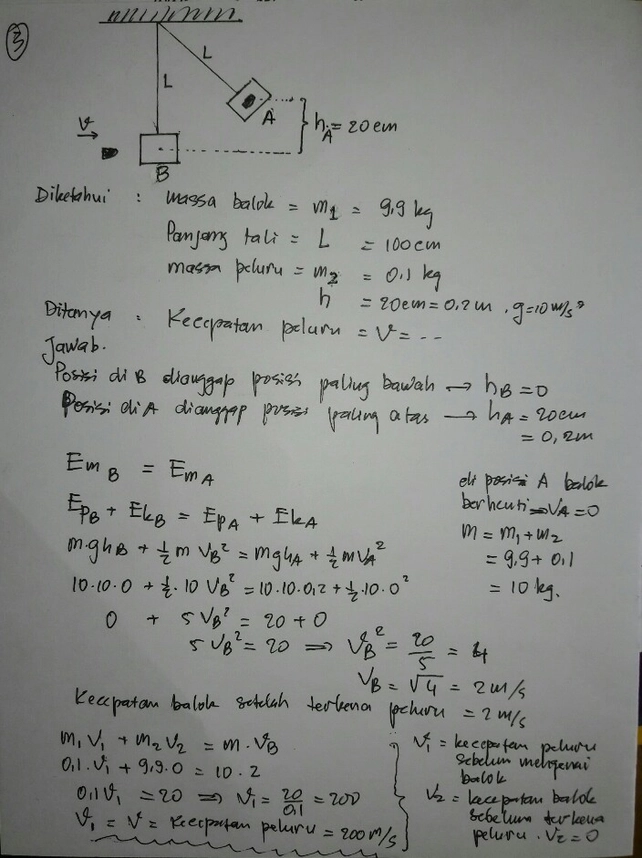 3
L
L
A
h_A = 20 cm
v
B
Diketahui : massa balok = m₁ = 9,9 kg
Panjang tali = L = 100 cm
massa peluru = m₂ = 0,1 kg
h = 20 cm = 0,2 m , g = 10 m/s²
Ditanya : Kecepatan peluru = V = ...
Jawab.
Posisi di B dianggap posisi paling bawah → h_B = 0
Posisi di A dianggap posisi paling atas → h_A = 20 cm
= 0,2 m
Em_B = Em_A
Ep_B + Ek_B = Ep_A + Ek_A
m·g h_B + ½ m V_B² = m g h_A + ½ m V_A²
10·10·0 + ½·10 V_B² = 10·10·0,2 + ½·10·0²
0 + 5 V_B² = 20 + 0
5 V_B² = 20 ⇒ V_B² = 20/5 = 4
V_B = √4 = 2 m/s
di posisi A balok
berhenti ⇒ V_A = 0
m = m₁ + m₂
= 9,9 + 0,1
= 10 kg.
Kecepatan balok setelah terkena peluru = 2 m/s
m₁ V₁ + m₂ V₂ = m · V_B
0,1 · V₁ + 9,9 · 0 = 10 · 2
0,1 V₁ = 20 ⇒ V₁ = 20/0,1 = 200
V₁ = V = Kecepatan peluru = 200 m/s
V₁ = kecepatan peluru
sebelum mengenai
balok
V₂ = kecepatan balok
sebelum terkena
peluru · V₂ = 0